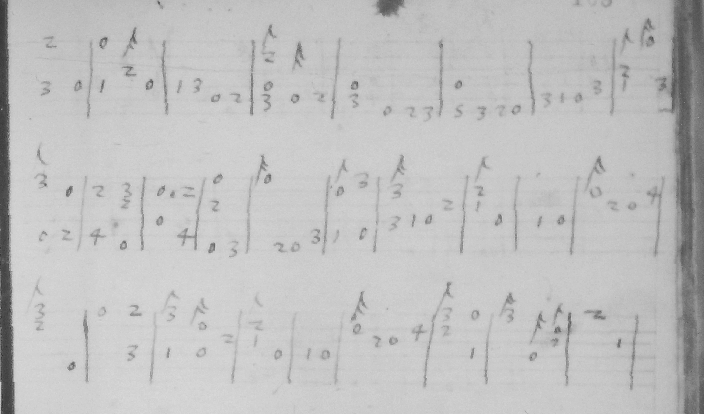 2 0 2 0 2 3 0 1 0 1 3 0 2 0 3 0 2 0 3 0 2 3 0 5 3 2 0 3 1 0 3 0 2 1 3
3 0 2 0 2 4 3 2 0 0 0 2 4 0 2 0 3 0 2 0 3 0 1 3 0 3 3 1 0 2 2 1 0 1 0 0 2 0 4
3 2 0 0 2 3 3 1 0 0 2 2 1 0 1 0 0 2 0 4 3 2 0 1 3 0 0 2 2 1